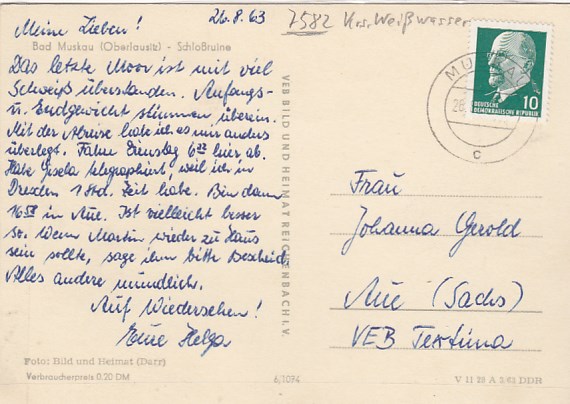 Meine Lieben! 26.8.63
7582 Krs. Weißwasser
Bad Muskau (Oberlausitz) - Schloßruine
Das letzte Moor ist mit viel
Schweiß überstanden. Anfangs-
u. Endgewicht stimmen überein.
Mit der Abreise habe ich es mir anders
überlegt. Fahre Dienstag 6 22 hier ab.
Habe Gisela telegraphiert, weil ich in
Dresden 1 Std. Zeit habe. Bin dann
16 in Aue. Ist vielleicht besser
so. Wenn Martin wieder zu Haus
sein sollte, sage ihm bitte Bescheid.
Alles andere mündlich.
Auf Wiedersehen!
Eure Helga
Foto: Bild und Heimat (Darr)
Verbraucherpreis 0,20 DM
6/1074
VEB BILD UND HEIMAT REICHENBACH I. V.
MU
26
c
DEUTSCHE
DEMOKRATISCHE REPUBLIK
10
Frau
Johanna Gerold
Aue (Sachs)
VEB Textima
V 11 28 A 2/62 DDR